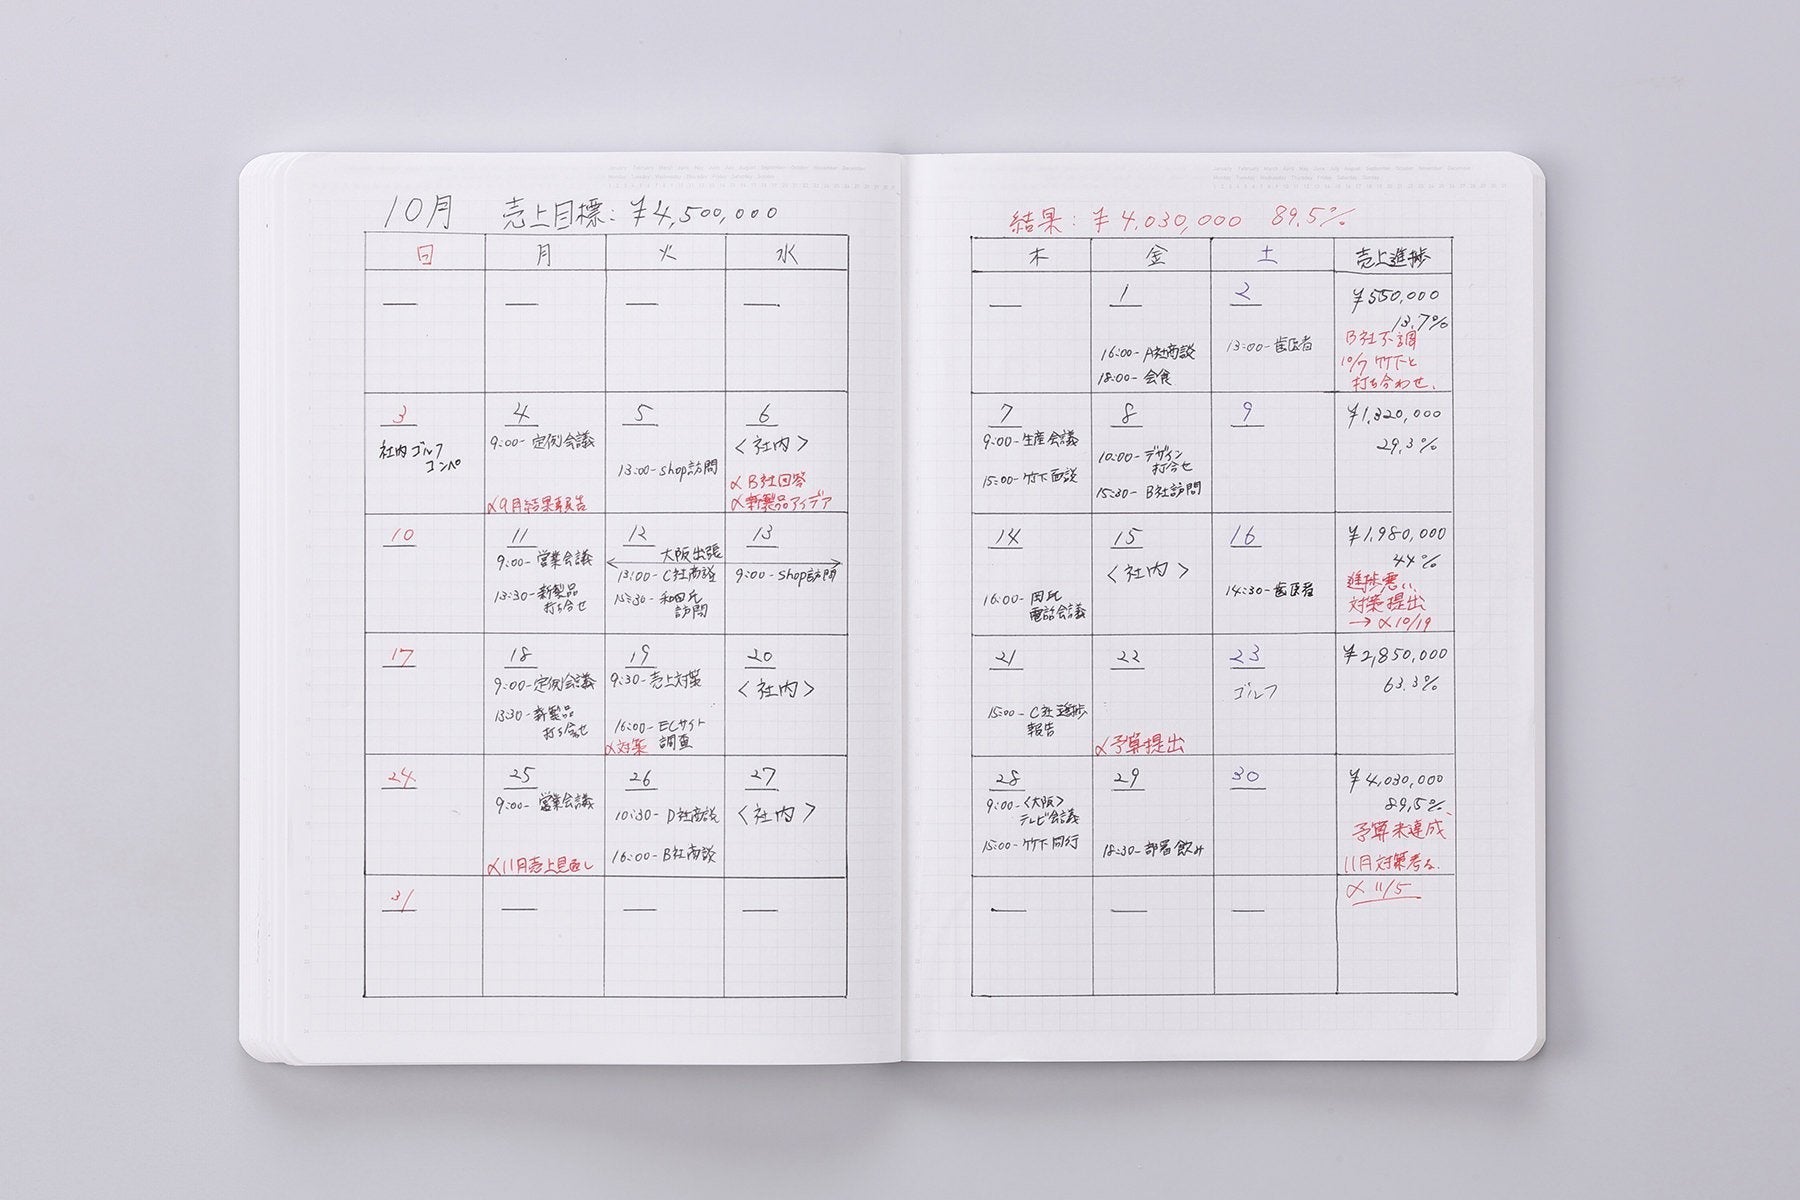 10月 売上目標：¥4,500,000
日 月 火 水
— — — —
3
社内ゴルフ
コンペ
4
9:00- 定例会議
〆9月結果報告
5
13:00- shop訪問
6
<社内>
〆B社回答
〆新製品アイデア
10
11
9:00- 営業会議
13:30- 新製品
打ち合せ
12
大阪出張
13:00- C社商談
15:30- 和田氏
訪問
13
9:00- shop訪問
17
18
9:00- 定例会議
13:30- 新製品
打ち合せ
19
9:30- 売上対策
16:00- ECサイト
調査
〆対策
20
<社内>
24
25
9:00- 営業会議
〆11月売上見直し
26
10:30- D社商談
16:00- B社商談
27
<社内>
31 — — —
January February March April May June July August September October November December
Monday Tuesday Wednesday Thursday Friday Saturday Sunday
結果：¥4,030,000 89.5%
木 金 土 売上進捗
—
1
16:00- A社商談
18:00- 会食
2
13:00- 歯医者
¥550,000
13.7%
B社不調
10/7 竹下と
打ち合わせ、
7
9:00- 生産会議
15:00- 竹下面談
8
10:00- デザイン
打合せ
15:30- B社訪問
9
¥1,320,000
29.3%
14
16:00-
電話会議
15
<社内>
16
14:30- 歯医者
¥1,980,000
44%
進捗悪い、
対策提出
→ 〆10/19
21
15:00- C社進捗
報告
22
〆予算提出
23
ゴルフ
¥2,850,000
63.3%
28
9:00- <大阪>
テレビ会議
15:00- 竹下同行
29
18:30- 部署飲み
30
¥4,030,000
89.5%
予算未達成、
11月対策考る、
〆11/5
— — —